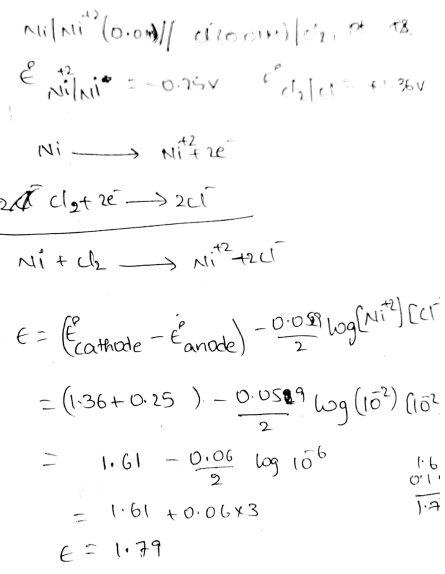 Ni/Ni⁺²(0.01)// Cl⁻(0.01M)/Cl₂, Pt
E° Ni⁺²/Ni = -0.25V E° Cl₂/Cl⁻ = +1.36V
Ni ⟶ Ni⁺² + 2e⁻
Cl₂ + 2e⁻ ⟶ 2Cl⁻
Ni + Cl₂ ⟶ Ni⁺² + 2Cl⁻
E = (E°cathode - E°anode) - 0.059/2 log[Ni⁺²][Cl⁻
= (1.36 + 0.25) - 0.0519/2 log (10⁻²) (10⁻²
= 1.61 - 0.06/2 log 10⁻⁶
1.6
0.1
1.7
= 1.61 + 0.06×3
E = 1.79